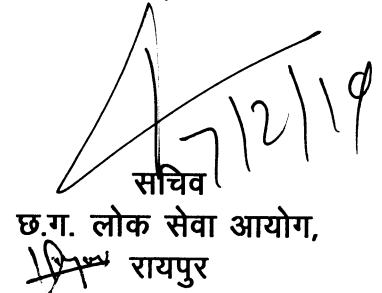 7/2/19
सचिव
छ.ग. लोक सेवा आयोग,
रायपुर